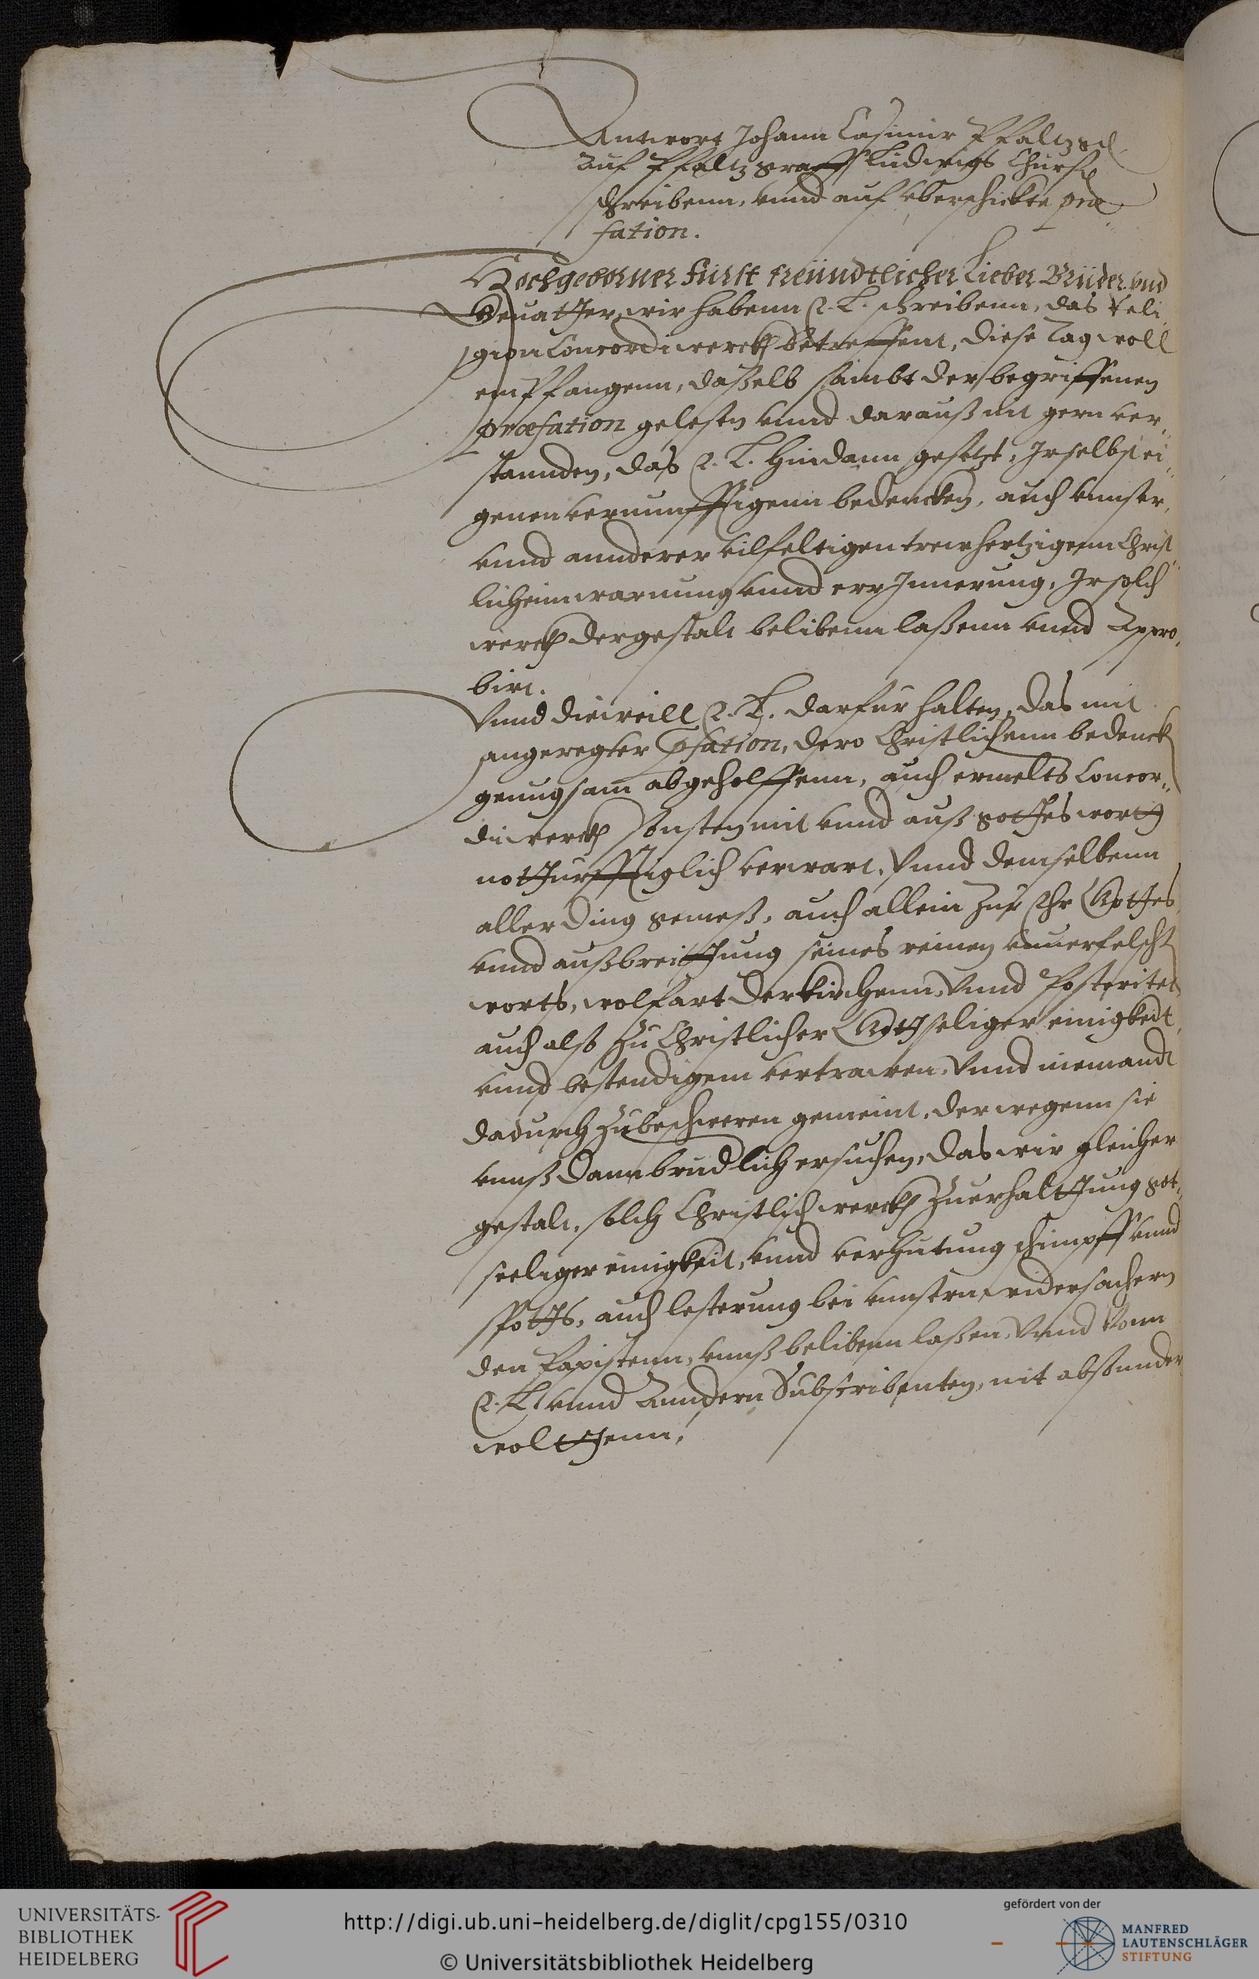 Antwort Johann Casimir Pfaltzgr
auf Pfaltzgraff Ludwigs Churf
schreibenn, vnnd auf vberschickte præ
fation.
Hochgeborner Fürst freündtlicher Lieber Brüder vnd
Geuatter, wir habenn E. L. schreibenn, das Reli
gion Concordi werckh betreffent, diese tag woll
empfangenn, daßelb sambt der begriffenen
præfation gelesen vnnd darauß nit gern ver
stannden, das E. L. hindann gesetzt, Ir selbst ei
genen vernunfftigenn bedencken, auch vnnser,
vnnd annderer vilfeltigen trewhertzigenn Christ
lichenn warnung vnnd errInnerung, Ir solch
werckh dergestalt belibenn laßenn vnnd Appro
birt.
Vnnd dieweill E. L. darfür halten, das mit
angeregter Pfation, dero Christlichenn bedenck
genugsam abgeholffenn, auch ermelts Concor
di werckh sonsten mit vnnd auß gottes wort
notturfftiglich verwart, Vnnd demselbenn
aller ding gemeß, auch allein zur Ehr Gottes
vnnd außbreittung seines reinen vnuerfelscht
worts, wolfart der kirchenn, Vnnd Posteritet
auch alß zu Christlicher Gottseliger einigkeit
vnnd bestendigem vertrawen, Vnnd niemandt
dadurch zubeschweren gemeint, derwegenn sie
vnnß dann brudlich ersuchen, das wir gleicher
gestalt, solch Christlich werckh zuerhalttung got
seeliger einigkeit, vnnd verhutung schimpff vnnd
spotts, auch lesterung bei vnnsern widersachern
den Papistenn, vnnß belibenn laßen, Vnnd Vonn
E. L. vnnd Anndern Subscribenten, nit absonnder
wolttenn,
UNIVERSITÄTS-
BIBLIOTHEK
HEIDELBERG
http://digi.ub.uni-heidelberg.de/diglit/cpg155/0310
© Universitätsbibliothek Heidelberg
gefördert von der
MANFRED
LAUTENSCHLÄGER
STIFTUNG